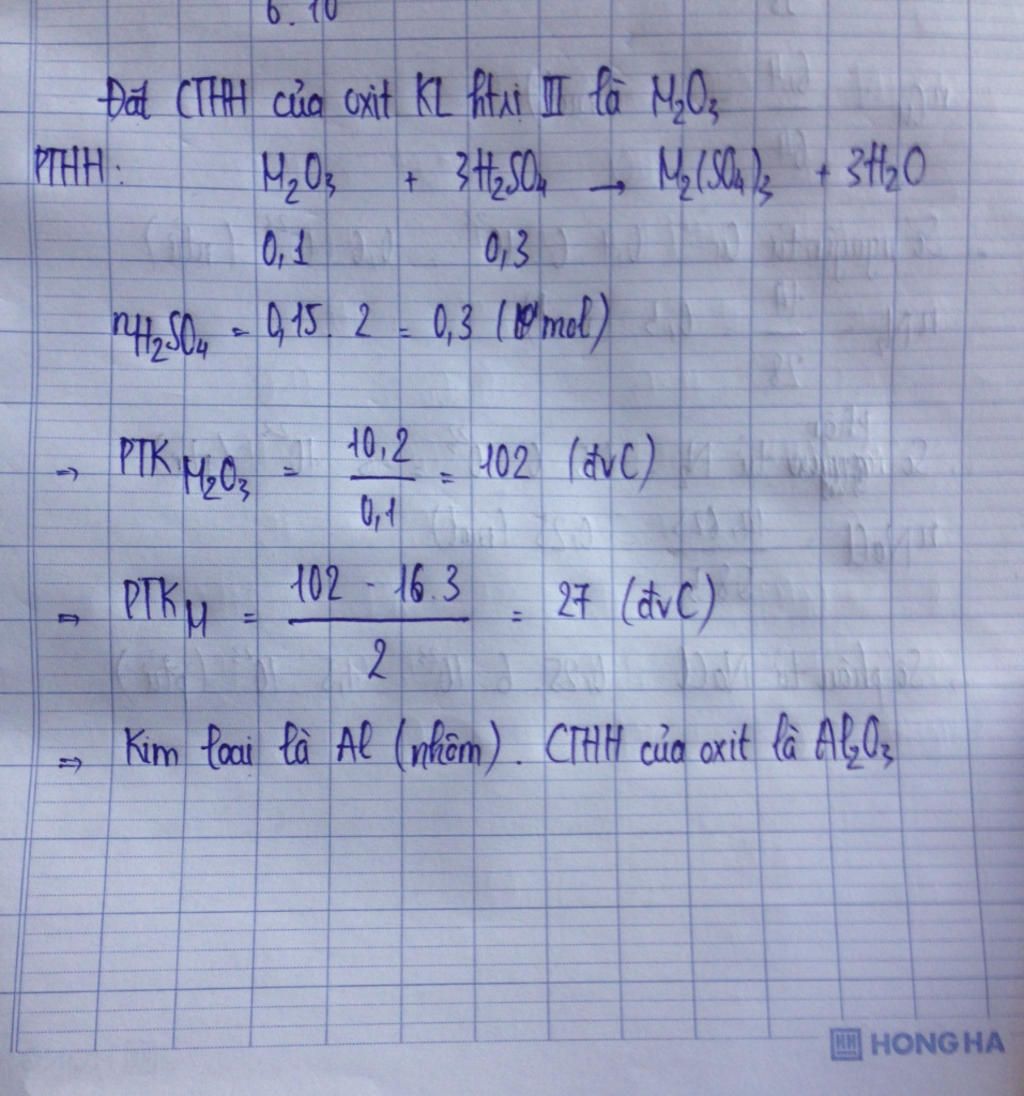 6.10
Đặt CTHH của oxit KL htrị III là M₂O₃
PTHH: M₂O₃ + 3H₂SO₄ → M₂(SO₄)₃ + 3H₂O
0,1 0,3
nH₂SO₄ = 0,15. 2 = 0,3 (mol)
→ PTK M₂O₃ = 10,2 / 0,1 = 102 (đvC)
⇒ PTK M = 102 - 16.3 / 2 = 27 (đvC)
⇒ Kim loại là Al (nhôm). CTHH của oxit là Al₂O₃
HH HONG HA